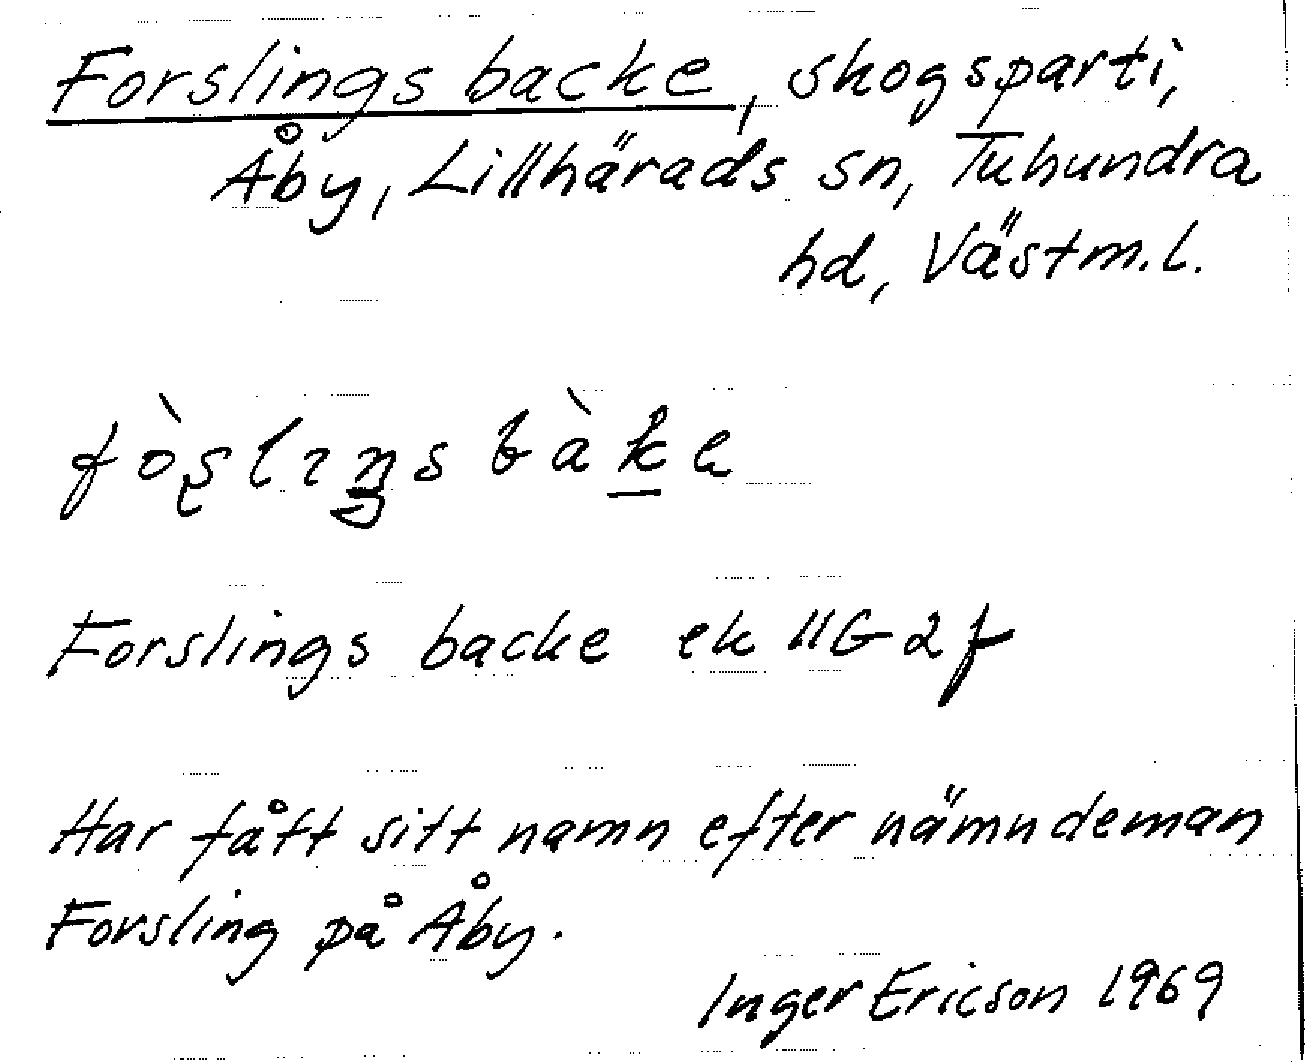 Forslings backe, skogsparti,
Åby, Lillhärads sn, Tuhundra
hd, Västm.l.
fòʂlɪŋs bàkə
Forslings backe ek 11G2f
Har fått sitt namn efter nämndeman
Forsling på Åby.
Inger Ericson 1969